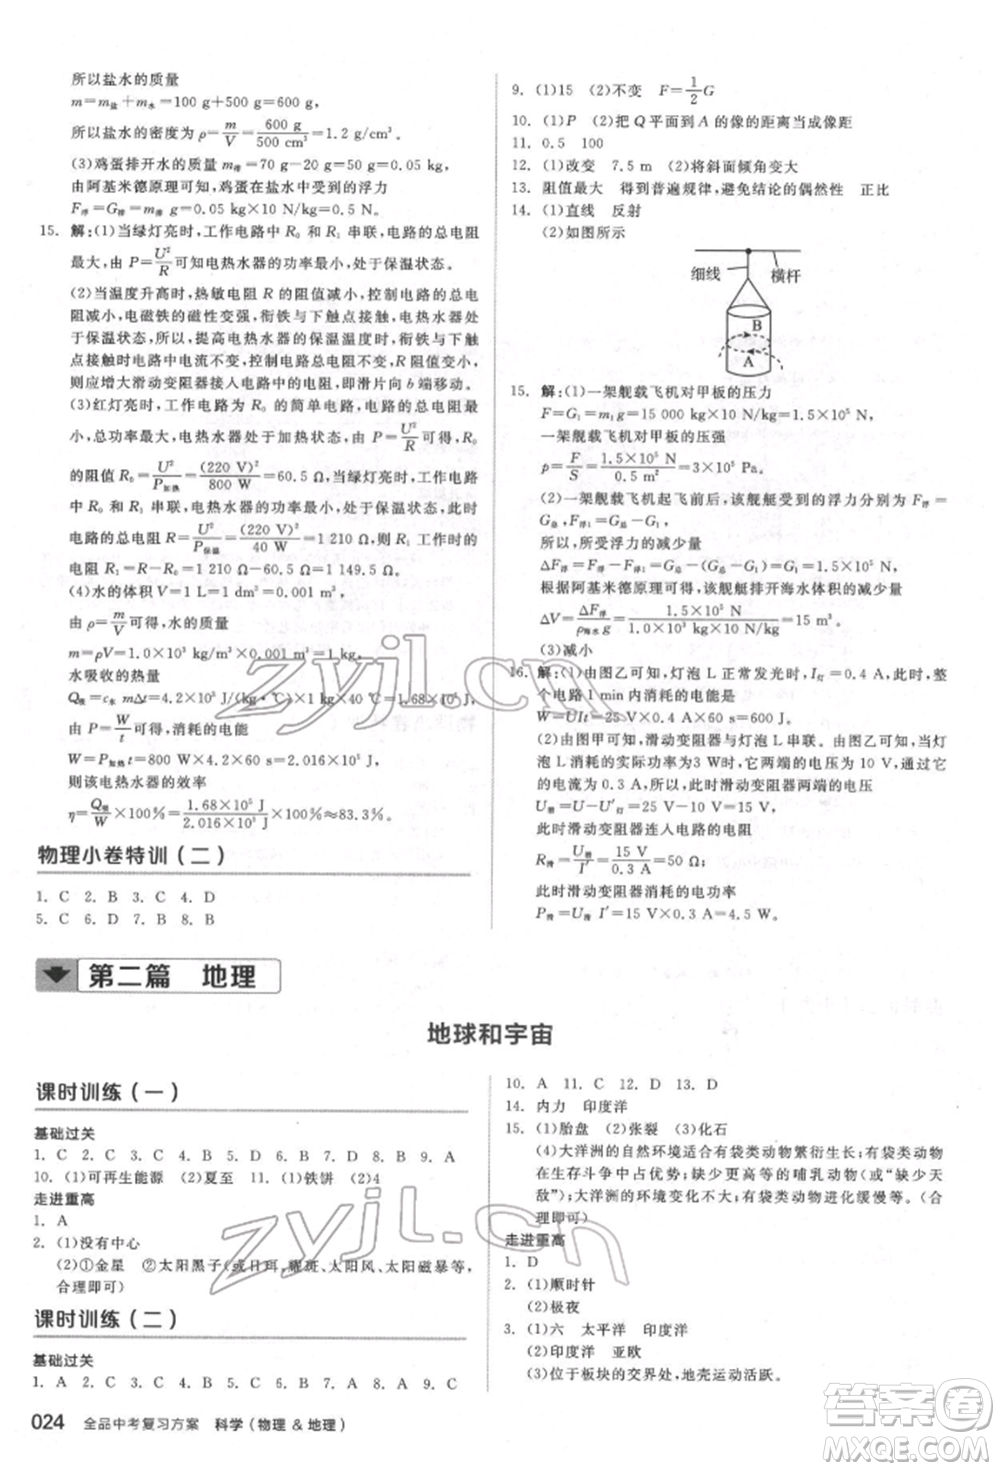 所以盐水的质量
m=m盐+m水=100 g+500 g=600 g,
所以盐水的密度为ρ=m/V=600 g/500 cm³=1.2 g/cm³.
(3)鸡蛋排开水的质量 m排=70 g-20 g=50 g=0.05 kg,
由阿基米德原理可知,鸡蛋在盐水中受到的浮力
F浮=G排=m排g=0.05 kg×10 N/kg=0.5 N.
15. 解:(1)当绿灯亮时,工作电路中 R₀ 和 R₁ 串联,电路的总电阻
最大,由 P=U²/R 可知电热水器的功率最小,处于保温状态.
(2)当温度升高时,热敏电阻 R 的阻值减小,控制电路的总电
阻减小,电磁铁的磁性变强,衔铁与下触点接触,电热水器处
于保温状态,所以,提高电热水器的保温温度时,衔铁与下触
点接触时电路中电流不变,控制电路总电阻不变,R 阻值变小,
则应增大滑动变阻器接入电路中的电阻,即滑片向 b 端移动.
(3)红灯亮时,工作电路为 R₀ 的简单电路,此时电路的总电
阻最小,电功率最大,电热水器处于加热状态,由 P=U²/R可得,R₀
的阻值 R₀=U²/P加热=(220 V)²/800 W=60.5 Ω,当绿灯亮时,工作电路
中 R₀ 和 R₁ 串联,电热水器处于保温状态,由 P=U²/R可得,此时
电路的总电阻 R=U²/P保温=(220 V)²/40 W=1 210 Ω,则 R₁ 的阻值
R₁=R-R₀=1 210 Ω-60.5 Ω=1 149.5 Ω.
(4)水的体积 V=1 L=1 dm³=0.001 m³,
由 ρ=m/V可得,水的质量
m=ρV=1.0×10³ kg/m³×0.001 m³=1 kg,
水吸收的热量
Q吸=c水mΔt=4.2×10³ J/(kg·℃)×1 kg×40 ℃=1.68×10⁵ J,
由 P=W/t可得,消耗的电能
W=P加热t=800 W×4.2×60 s=2.016×10⁵ J,
则该电热水器的效率
η=Q吸/W×100%=1.68×10⁵ J/2.016×10⁵ J×100%≈83.3%.
物理小卷特训(二)
1. C 2. B 3. C 4. D
5. C 6. D 7. B 8. B
9. (1)15 (2)不变 F=1/2G
10. (1)P (2)把 Q 平面到 A 的像的距离当成像距
11. 0.5 100
12. (1)改变 7.5 m (2)将斜面倾角变大
13. 阻值最大 得到普遍规律,避免结论的偶然性 正比
14. (1)直线 反射
(2)如图所示
细线 横杆
B
A
15. 解:(1)一架舰载飞机对甲板的压力
F=G₁=m₁g=15 000 kg×10 N/kg=1.5×10⁵ N,
一架舰载飞机对甲板的压强
p=F/S=1.5×10⁵ N/0.5 m²=3×10⁵ Pa.
(2)一架舰载飞机起飞前后,该舰艇受到的浮力分别为 F浮=
G总,F浮′=G总-G₁,
所以,所受浮力的减少量
ΔF浮=F浮-F浮′=G总-(G总-G₁)=G₁=1.5×10⁵ N,
根据阿基米德原理可得,该舰艇排开海水体积的减少量
ΔV=ΔF浮/ρ海水g=1.5×10⁵ N/1.0×10³ kg/m³×10 N/kg=15 m³.
(3)减小
16. 解:(1)由图乙可知,灯泡 L 正常发光时,I灯=0.4 A,所以,整
个电路 1 min 内消耗的电能是
W=UIt=25 V×0.4 A×60 s=600 J.
(2)由图甲可知,滑动变阻器与灯泡 L 串联.由图乙可知,当灯
泡 L 消耗的功率为3 W时,它两端的电压为10 V,通过它的电
流为 0.3 A,则此时滑动变阻器两端的电压
U滑=U-U灯=25 V-10 V=15 V,
此时滑动变阻器连入电路的电阻
R滑=U滑/I′=15 V/0.3 A=50 Ω;
此时滑动变阻器消耗的电功率
P滑=U滑I′=15 V×0.3 A=4.5 W.
第二篇 地理
地球和宇宙
课时训练(一)
基础过关
1. C 2. C 3. B 4. C 5. B 6. B 7. C 8. C 9. D
10. (1)可再生能源 (2)夏至 11. (1)铁饼 (2)4
走进重高
1. A
2. (1)没有中心
(2)①金星 ②太阳黑子(或日珥,耀斑、太阳风、太阳磁暴等,
合理即可)
课时训练(二)
基础过关
1. A 2. C 3. C 4. B 5. C 6. B 7. A 8. C 9. C
10. A 11. C 12. D 13. D
14. 内力 印度洋
15. (1)胎盘 (2)张裂 (3)化石
(4)大洋洲的自然环境适合有袋类动物繁衍生长;有袋类动物
在生存斗争中占优势;缺少更高等的哺乳动物(或“缺少天
敌”);大洋洲的环境变化不大;有袋类动物进化缓慢等.(合
理即可)
走进重高
1. D
2. (1)顺时针
(2)极夜
3. (1)六 太平洋 印度洋
(2)印度洋 亚欧
(3)位于板块的交界处,地壳运动活跃.
024 全品中考复习方案 科学(物理 & 地理)
zyjl.cn
zyjl.cn
答案圈
MXQE.COM